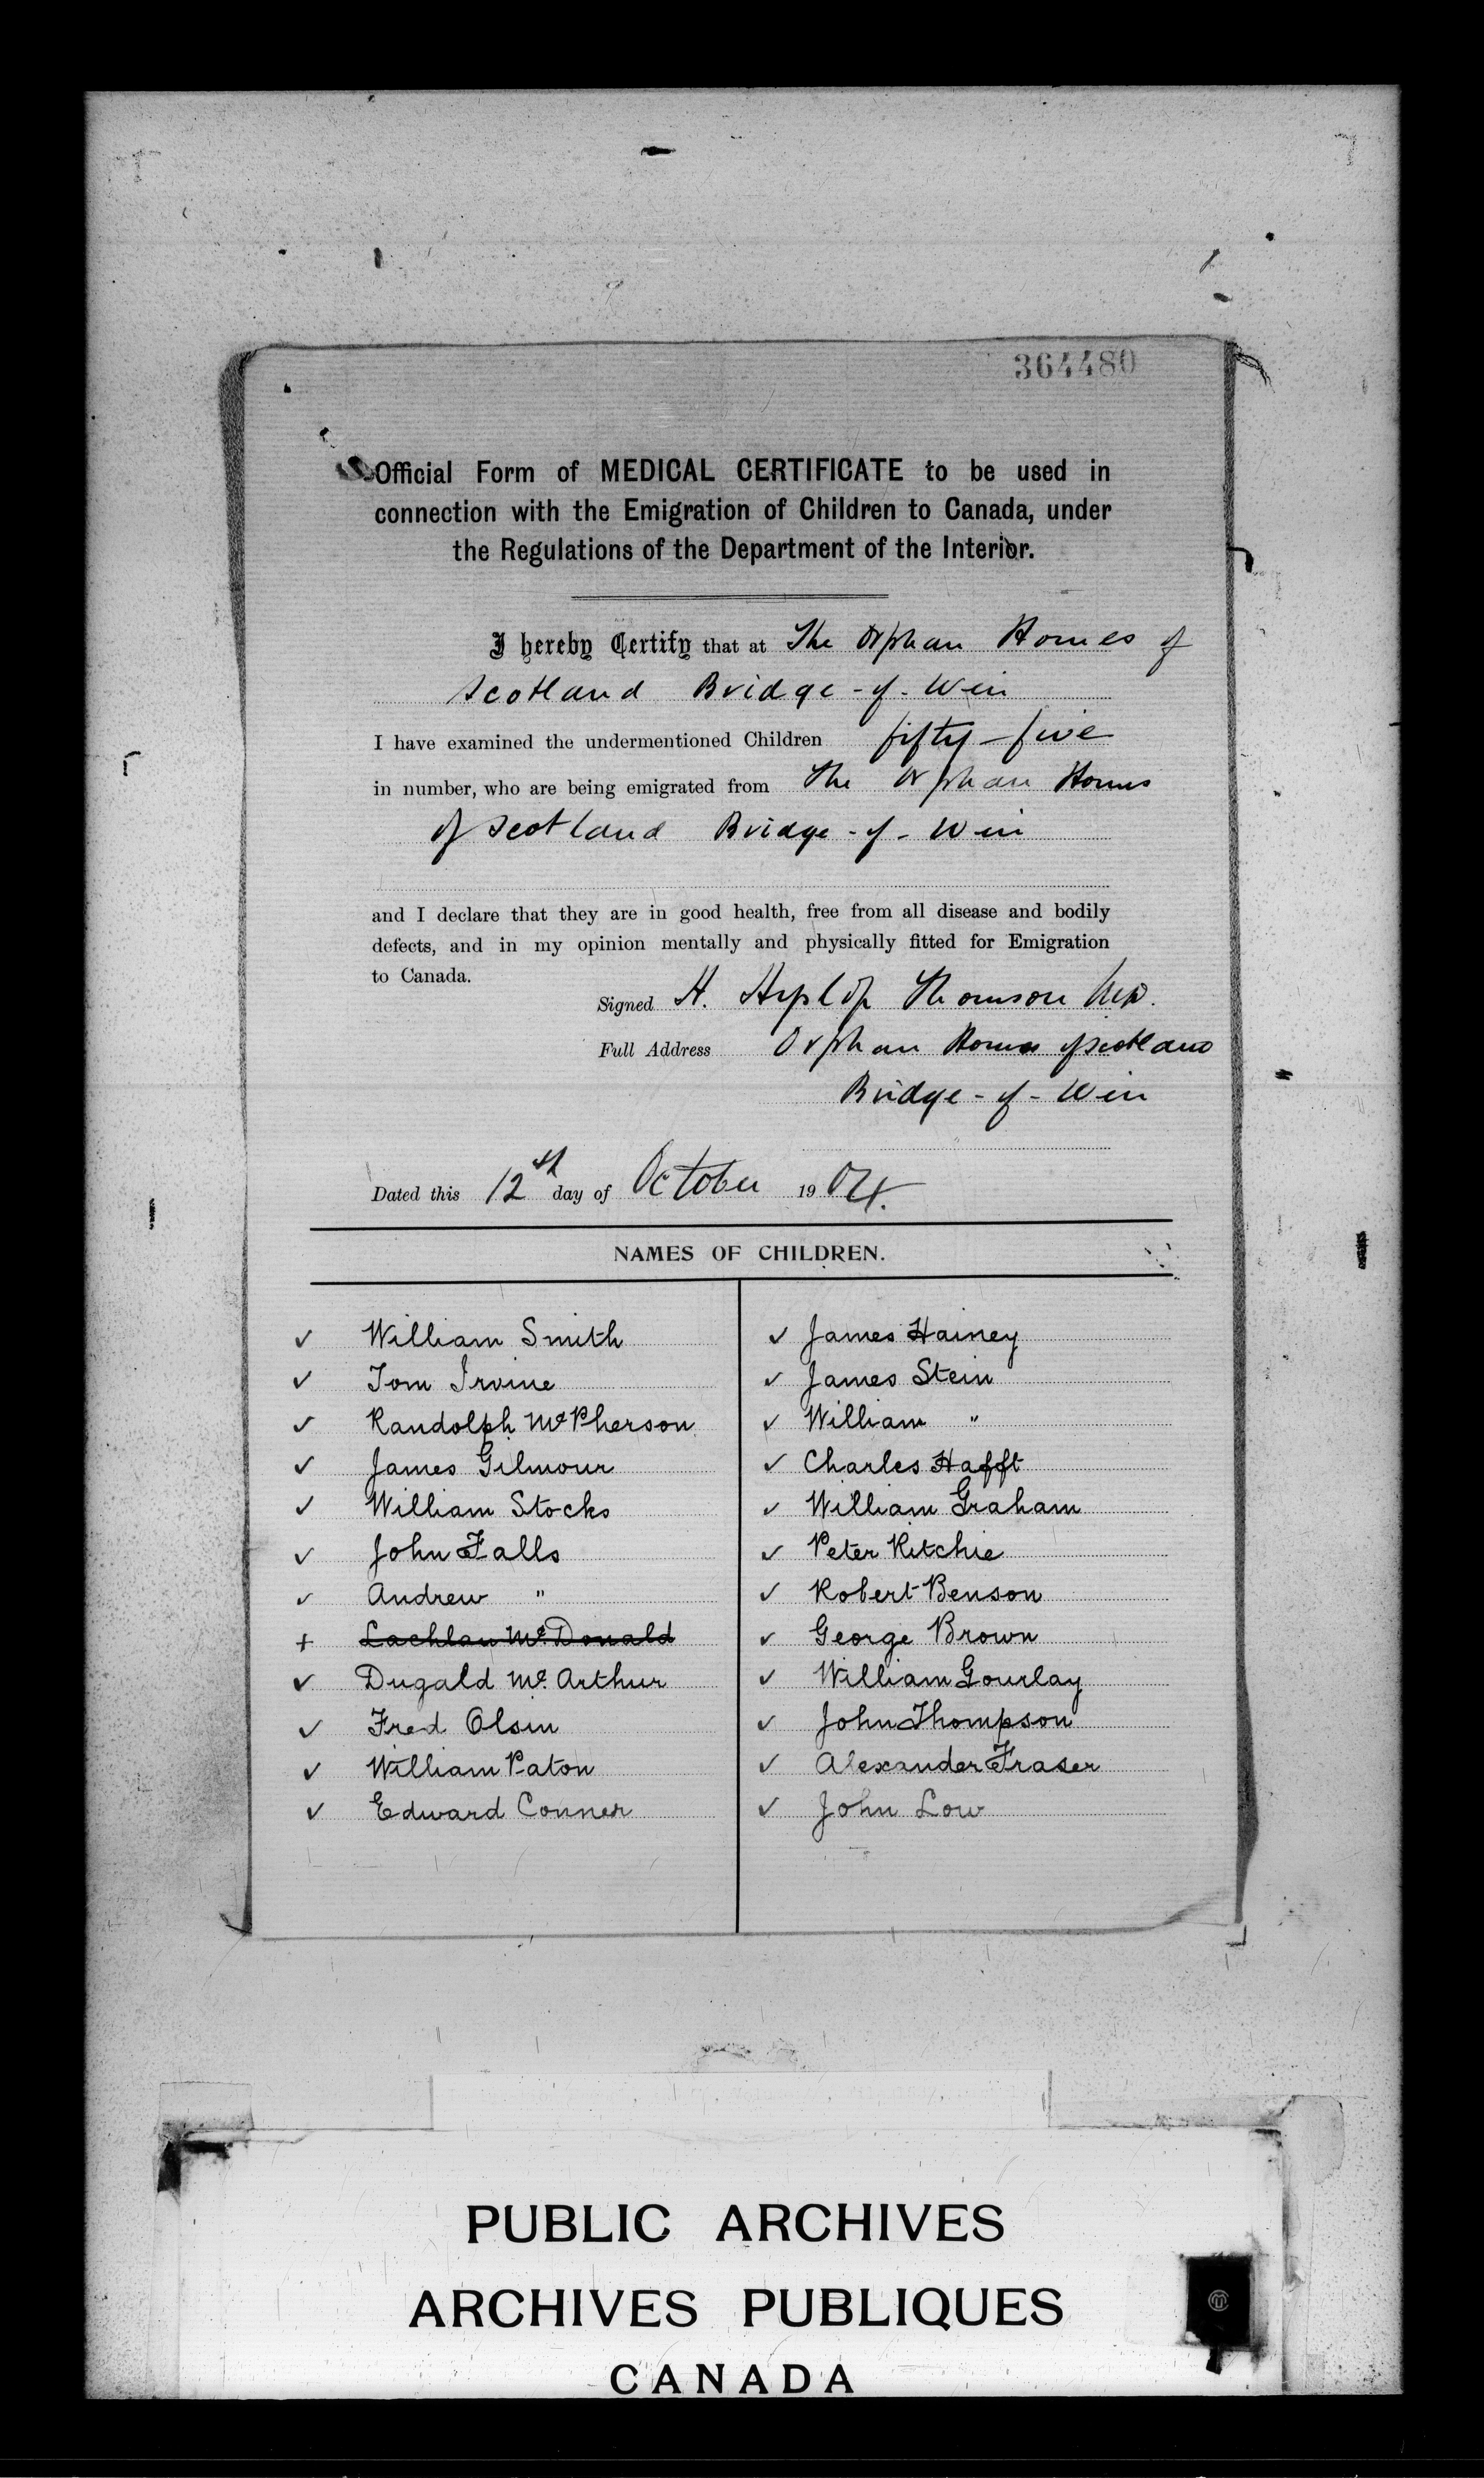 364480
Official Form of MEDICAL CERTIFICATE to be used in
connection with the Emigration of Children to Canada, under
the Regulations of the Department of the Interior.
I hereby Certify that at The Orphan Homes of
Scotland Bridge-of-Weir
I have examined the undermentioned Children fifty-five
in number, who are being emigrated from The Orphan Homes
of Scotland Bridge-of-Weir
and I declare that they are in good health, free from all disease and bodily
defects, and in my opinion mentally and physically fitted for Emigration
to Canada.
Signed H. Hyslop Thomson M.D.
Full Address Orphan Homes of Scotland
Bridge-of-Weir
Dated this 12th day of October 1904.
NAMES OF CHILDREN.
✓ William Smith
✓ Tom Irvine
✓ Randolph McPherson
✓ James Gilmour
✓ William Stocks
✓ John Falls
✓ Andrew "
+ Lachlan McDonald
✓ Dugald McArthur
✓ Fred Olsin
✓ William Paton
✓ Edward Conner
✓ James Hainey
✓ James Stein
✓ William "
✓ Charles Hafft
✓ William Graham
✓ Peter Ritchie
✓ Robert Benson
✓ George Brown
✓ William Gourlay
✓ John Thompson
✓ Alexander Fraser
✓ John Low
PUBLIC ARCHIVES
ARCHIVES PUBLIQUES
CANADA